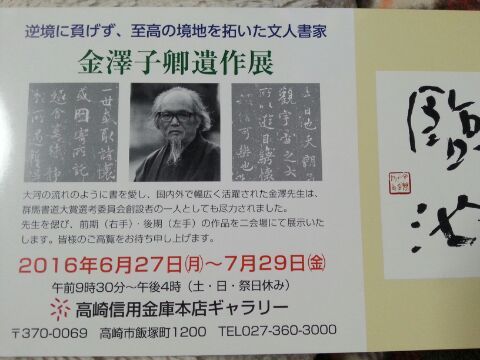 逆境に負げず、至高の境地を拓いた文人書家
金澤子卿遺作展
大河の流れのように書を愛し、国内外で幅広く活躍された金澤先生は、
群馬書道大賞選考委員会創設者の一人としても尽力されました。
先生を偲び、前期（右手）・後期（左手）の作品を二会場にて展示いた
します。皆様のご高覧をお待ち申し上げます。
2016年6月27日(月)～7月29日(金)
午前9時30分～午後4時（土・日・祭日休み）
高崎信用金庫本店ギャラリー
〒370-0069 高崎市飯塚町1200 TEL027-360-3000
臨
池